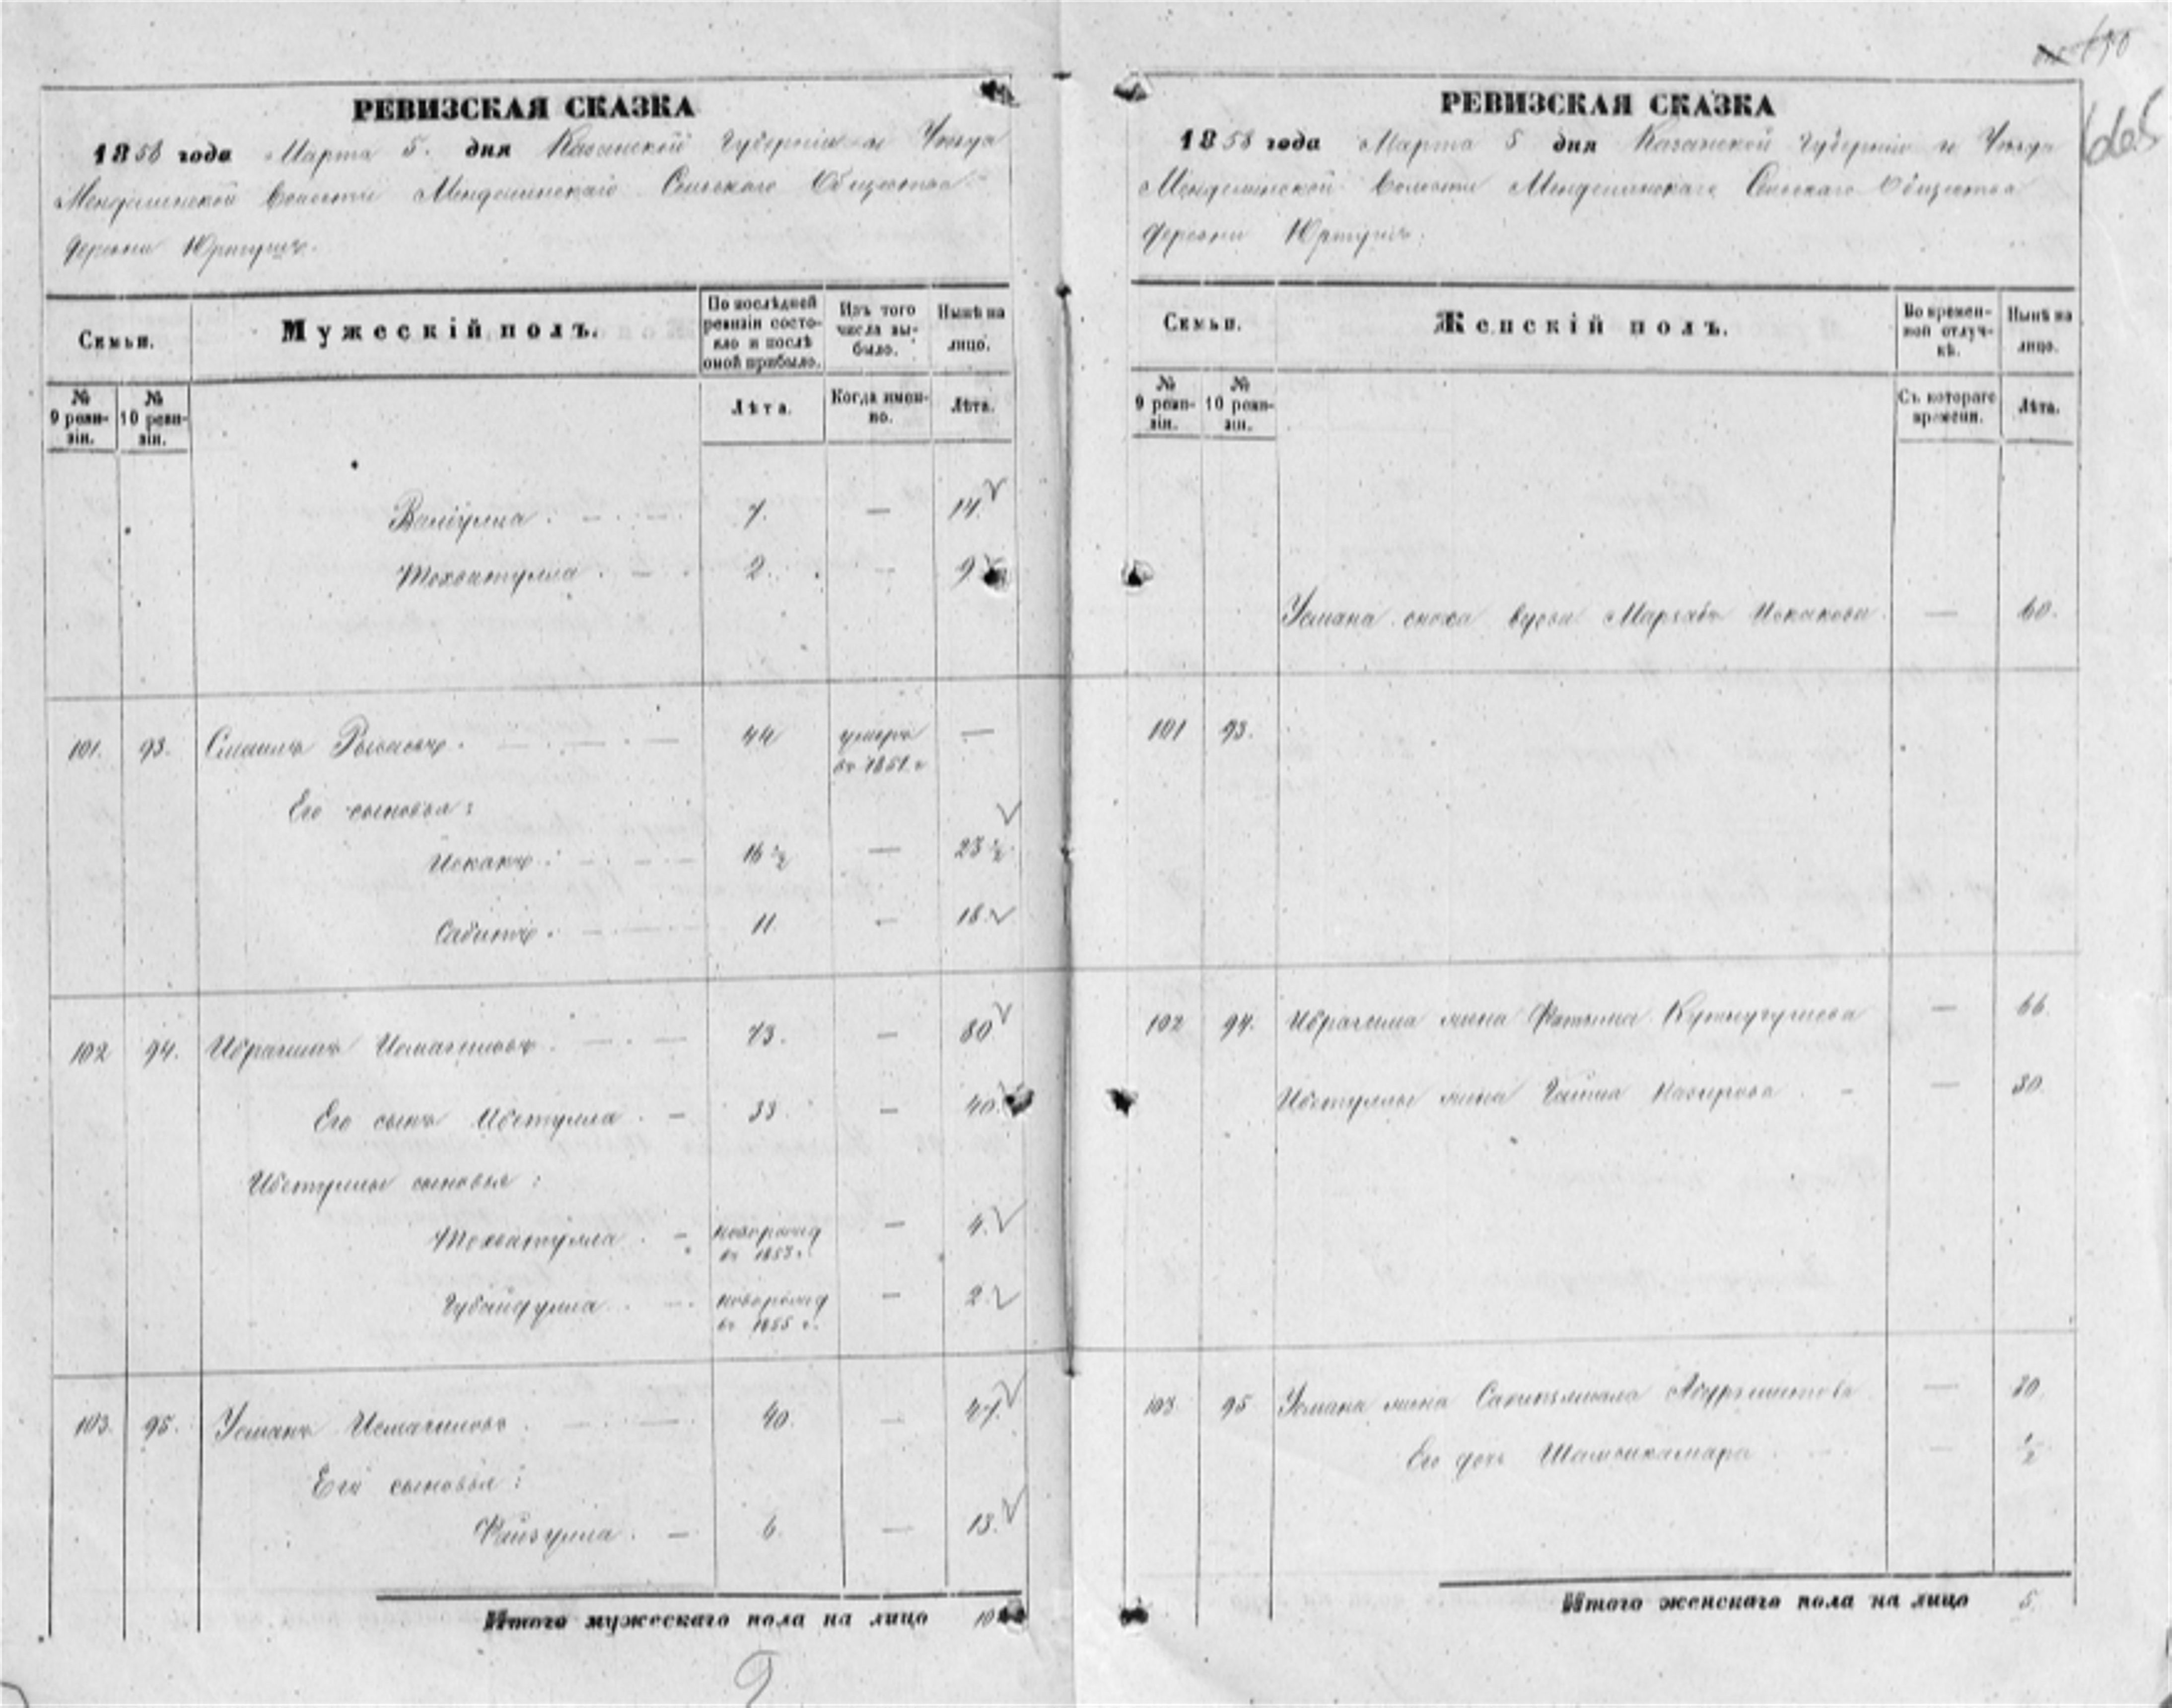 670
665
РЕВИЗСКАЯ СКАЗКА
1858 года Марта 5. дня Казанской Губерніи и Уѣзда
Менделинской Волости Менделинскаго Сельскаго Общества
деревни Юртушъ.
Семьи.
Мужескій полъ.
По послѣдней ревизіи состояло и послѣ оной прибыло.
Изъ того числа выбыло.
Нынѣ на лицо.
№ 9 ревизіи.
№ 10 ревизіи.
Лѣта.
Когда именно.
Лѣта.
Валіулла . 7. — 14.
Тохватулла . 2. — 9
101. 93. Смаилъ 44 умеръ въ 1851. г —
Его сыновья:
Искакъ . 16½ — 23½
Сабитъ . 11 — 18.
102 94. Ибрагимъ Исмагиловъ . 73. — 80
Его сынъ Ибетулла . — 33. — 40.
Ибетуллы сыновья :
Тохватулла . — новорожд въ 1853 г. — 4.
Губайдулла . новорожд въ 1855 г. — 2.
103. 95. Усманъ Исмагиловъ . 40. — 47.
Его сыновья :
Файзулла . — 6. — 13.
Итого мужескаго пола на лицо 10
РЕВИЗСКАЯ СКАЗКА
1858 года Марта 5 дня Казанской Губерніи и Уѣзда
Менделинской Волости Менделинскаго Сельскаго Общества
деревни Юртушъ.
Семьи.
Женскій полъ.
Во временной отлучкѣ.
Нынѣ на лицо.
№ 9 ревизіи.
№ 10 ревизіи.
Съ котораго времени.
Лѣта.
Усмана сноха вдова Мархаба Искакова — 60.
101 93.
102 94. Ибрагима жена Фатыма — 66
Ибетуллы жена Гайша — 30.
103 95 Усмана жена — 30.
Его дочь Шамсикамара — ½
Итого женскаго пола на лицо 5.